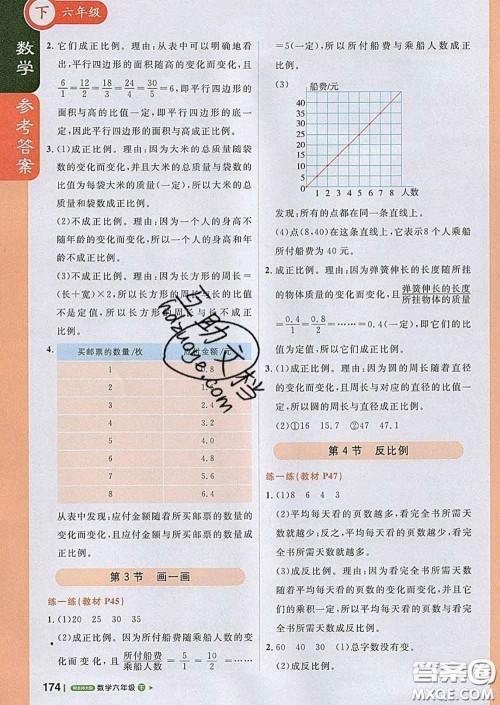 下 六年级
数学
参考答案
2. 它们成正比例。理由:从表中可以明确地看
出,平行四边形的面积随高的变化而变化,且
6/1=12/2=18/3=24/4=30/5=6,即平行四边形的
面积与高的比值一定,即平行四边形的底一
定,因此平行四边形的面积与高成正比例。
3. (1)成正比例。理由:因为大米的总质量随袋
数的变化而变化,并且大米的总质量与袋数的
比值为每袋大米的质量(一定),所以大米的总
质量与袋数成正比例。
(2)不成正比例。理由:因为一个人的身高不
随年龄的变化而变化,所以一个人的身高和年
龄不成正比例。
(3)不成正比例。理由:因为长方形的周长=
(长+宽)×2,所以长方形的周长与长的比值
不是定值,所以长方形的周长与长不成正
比例。
4.
买邮票的数量/枚 应付金额/元
1 0.8
2 1.6
3 2.4
4 3.2
5 4.0
6 4.8
7 5.6
8 6.4
从表中发现:应付金额随着所买邮票的数量的
变化而变化,且应付金额与所买邮票的数量的
比值一定。
第3节 画一画
练一练(教材 P45)
1. (1)20 25 30 35
(2)成正比例。因为所付船费随乘船人数的变
化而变化,且所付船费/乘船人数=5/1=10/2=15/3=……
=5(一定),所以所付船费与乘船人数成正
比例。
(3)
船费/元
40
35
30
25
20
15
10
5
0 1 2 3 4 5 6 7 8 人数
发现:所有的点都在同一条直线上。
(4)点(8,40)在这条直线上,它表示8个人乘船
所付船费为40元。
3. 成正比例。理由:因为弹簧伸长的长度随所挂
的物体质量的变化而变化,且弹簧伸长的长度/所挂物体的质量
=0.4/1=0.8/2=……=0.4(一定),所以它们成正
比例。
4. (1)成正比例。理由:因为圆的周长随着直径
的变化而变化,并且圆的周长与直径的比值一
定,所以圆的周长与直径成正比例。
(2)①16 15.7 ②15 47.1
第4节 反比例
练一练(教材 P47)
1. (1)8 6 4 3
(2)平均每天看的页数越多,看完全书所需天
数就越少;反之,平均每天看的页数越少,看完
全书所需天数就越多。
(3)成反比例。理由:因为看完全书所需天数
随着平均每天看的页数的变化而变化,并且看
完全书所需天数与平均每天看的页数的乘积
一定,所以平均每天看的页数与看完全书所需
天数成反比例。
2. (1)60 40 30 24 20 15
(2)成反比例。理由:因为行驶完全程所需时
174 数学六年级 下
互助文档
huzuoye.com
答案圈
MXQE.COM